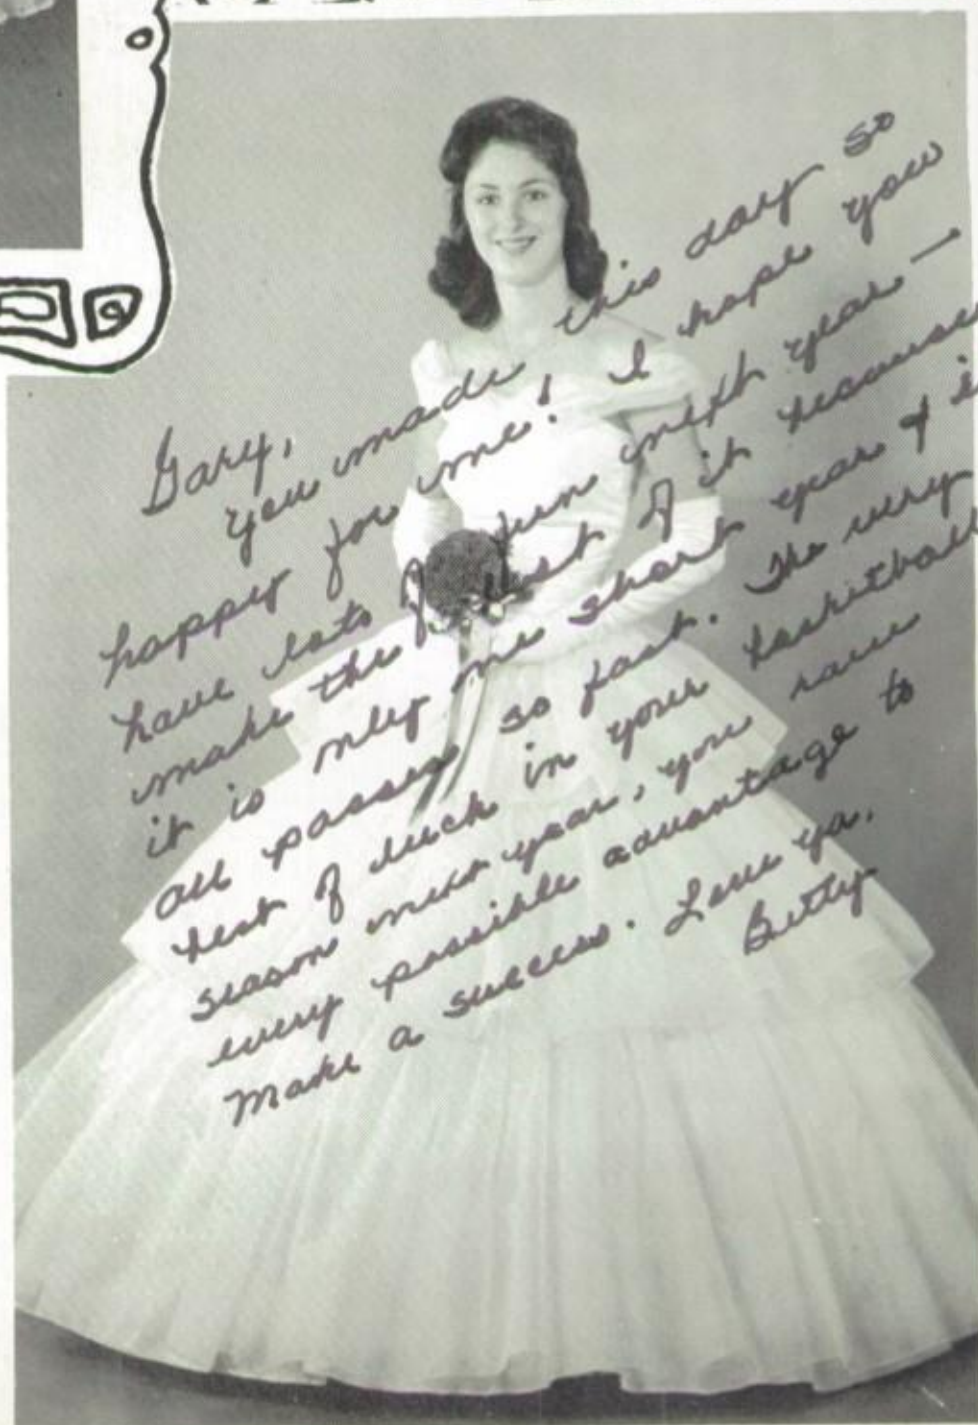 Gary,
you made this day so
happy for me! I hope you
have lots of fun next year —
make the best of it because
it is only one short year & it
all passes so fast. The very
best of luck in your basketball
season next year, you have
every possible advantage to
make a success. Love ya,
Betty